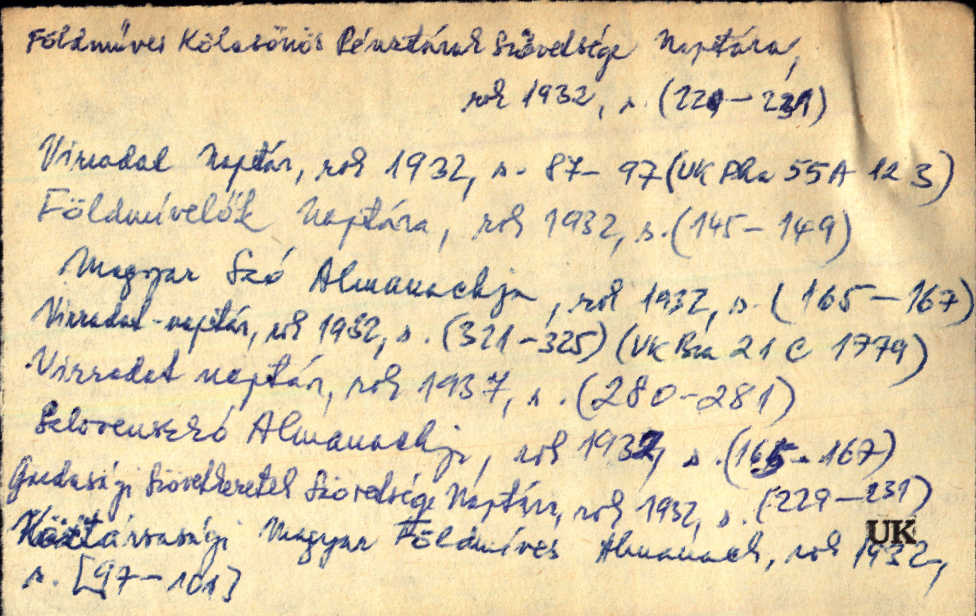 Földműves Kölcsönös Pénztárak Szövetsége Naptára,
rok 1932, s. (229-231)
Virradat Naptár, rok 1932, s. 87-97 (UK Pha 55 A 123)
Földmívelők Naptára, rok 1932, s. (145-149)
Magyar Szó Almanachja, rok 1932, s. (165-167)
Virradat-naptár, rok 1932, s. (321-325) (UK Bra 21 C 1779)
Virradat naptár, rok 1937, s. (280-281)
Almanachja, rok 1932, s. (165-167)
Gazdasági Szövetkezetek Szövetsége Náptára, rok 1932, s. (229-231)
Köztársasági Magyar Földmíves Almanach, rok 1932,
s. [97-101]
UK